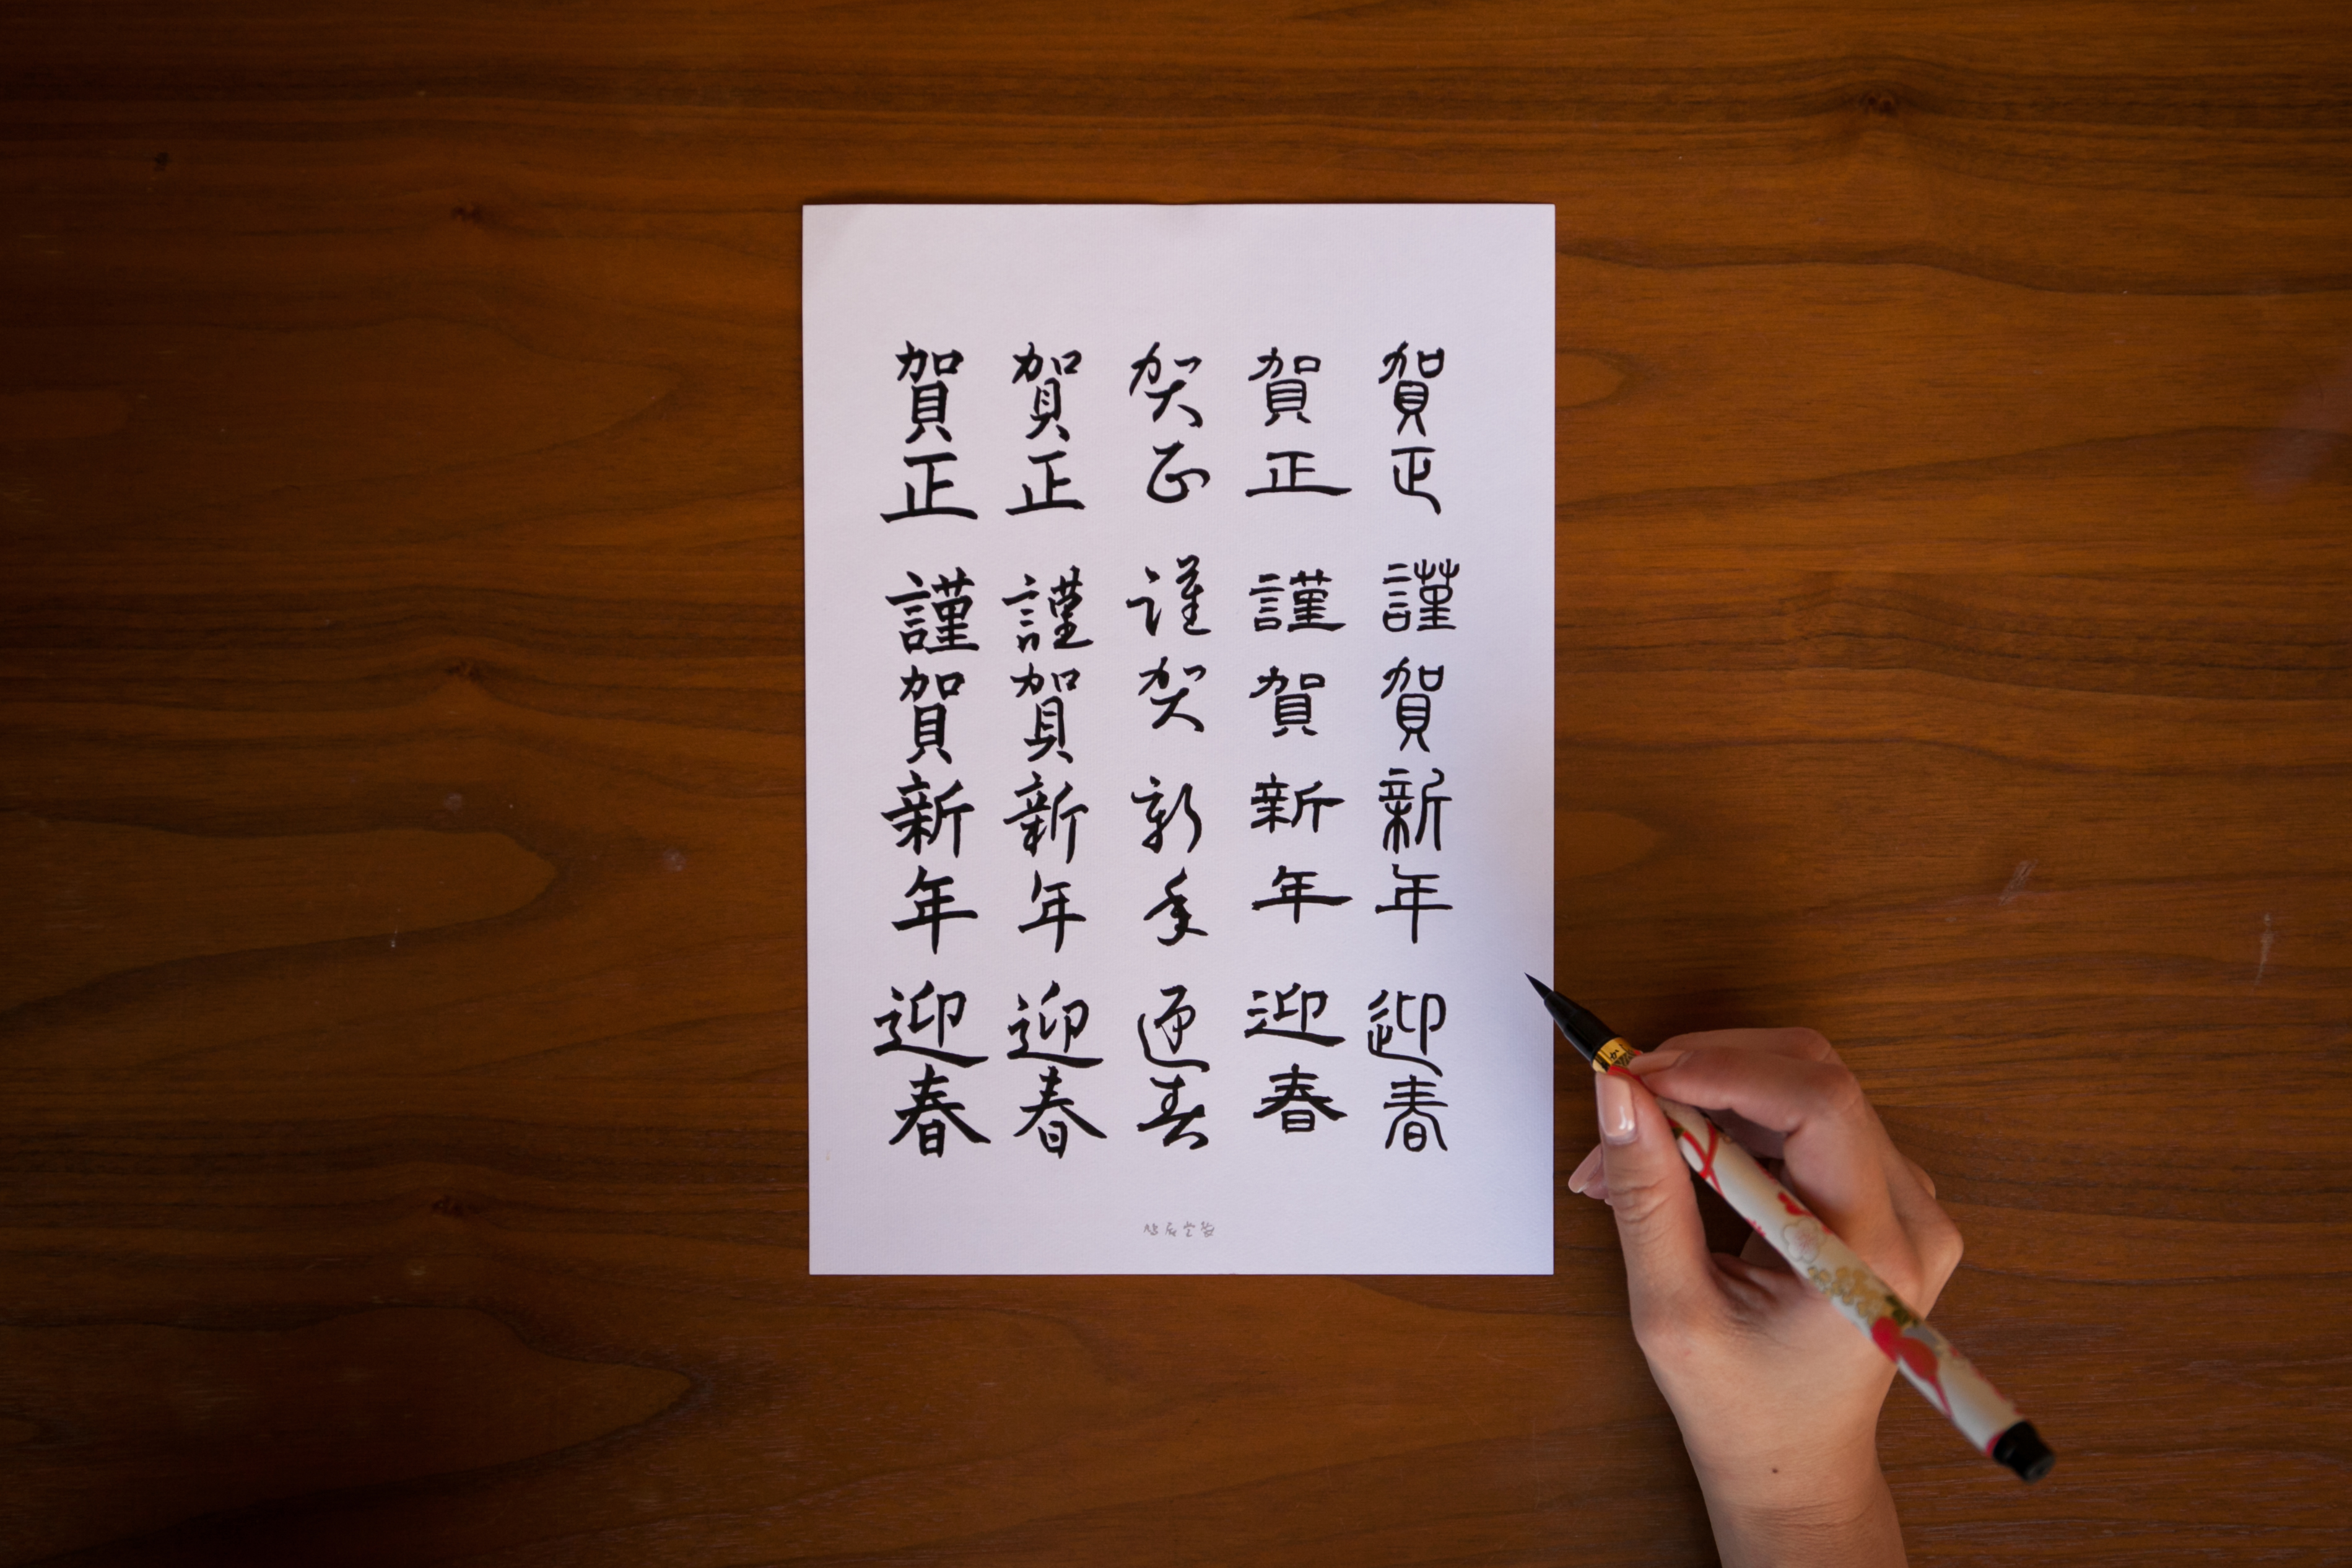 賀正 謹賀新年 迎春
賀正 謹賀新年 迎春
賀正 謹賀新年 迎春
賀正 謹賀新年 迎春
賀正 謹賀新年 迎春